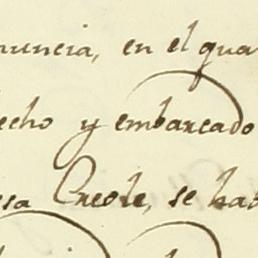 nuncia, en el qua
echo y embarcado
esa Creole, se had